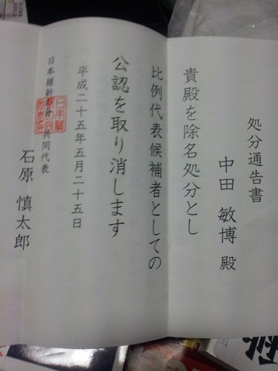 処分通告書
中田 敏博 殿
貴殿を除名処分とし
比例代表候補者としての
公認を取り消します
平成二十五年五月二十五日
日本維新の会 共同代表
石原 慎太郎